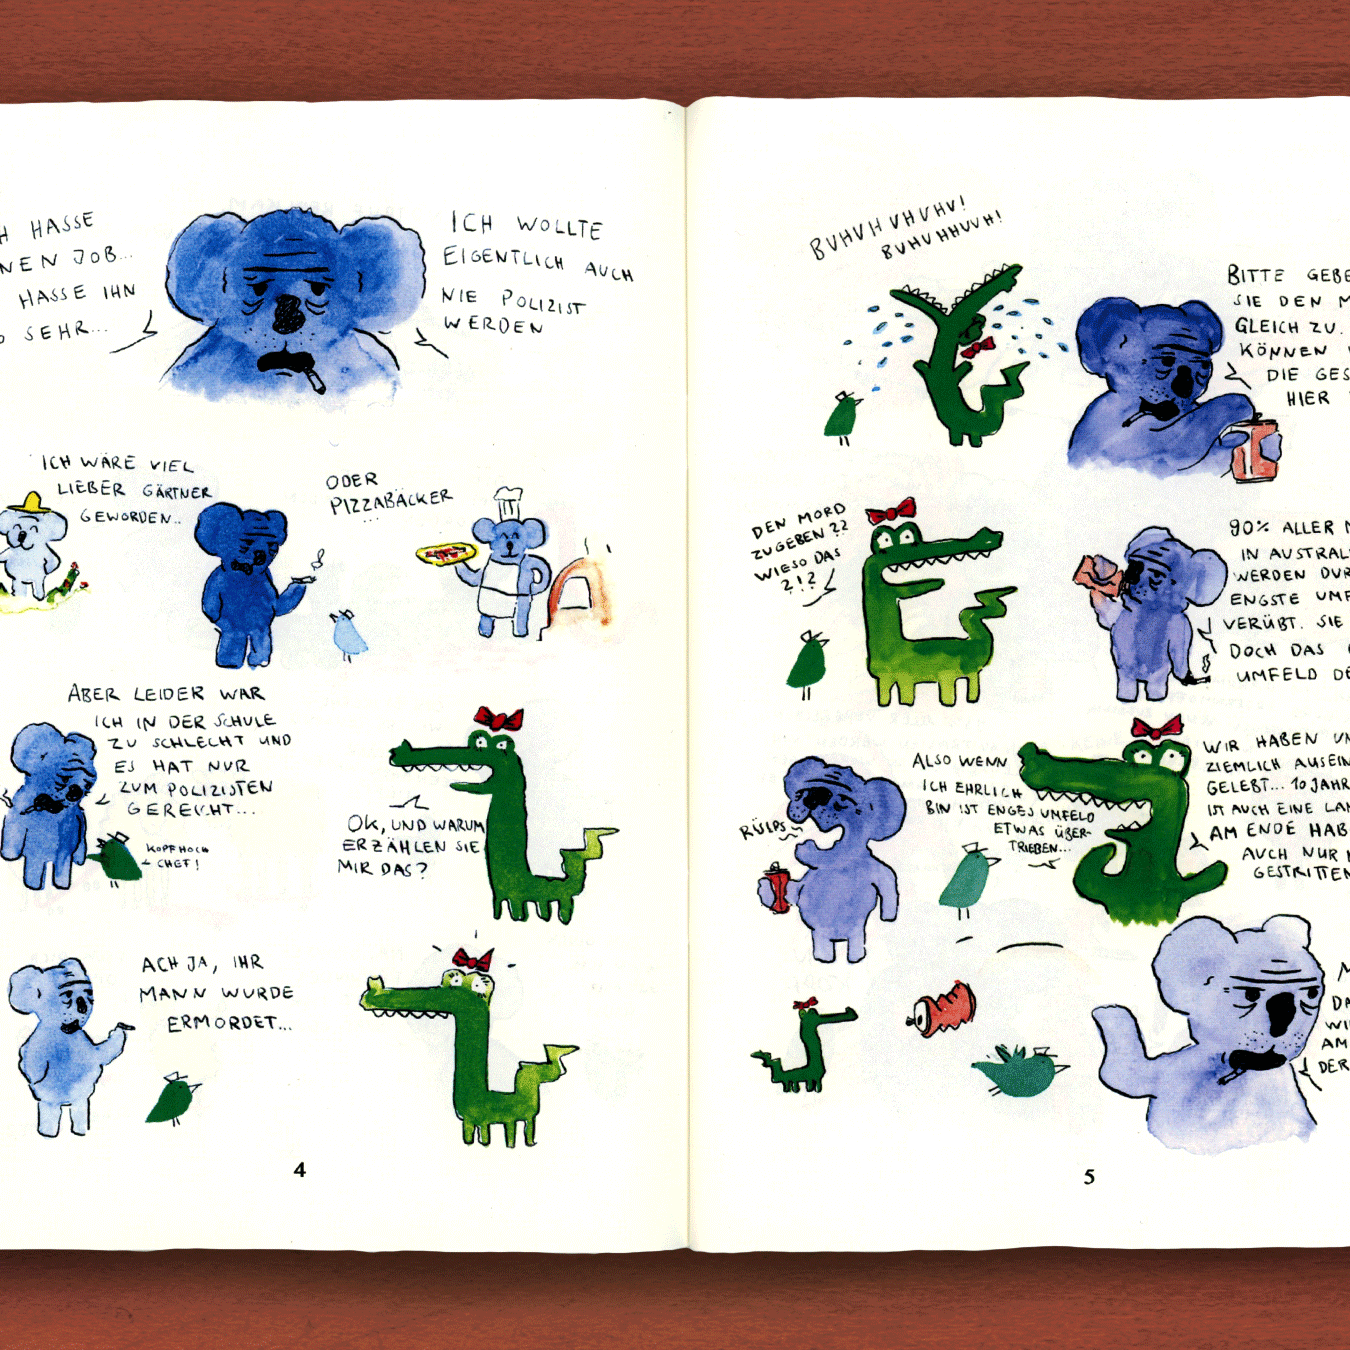 HASSE
JOB...
HASSE IHN
SEHR...
ICH WOLLTE
EIGENTLICH AUCH
NIE POLIZIST
WERDEN
ICH WÄRE VIEL
LIEBER GÄRTNER
GEWORDEN..
ODER
PIZZABÄCKER
...
ABER LEIDER WAR
ICH IN DER SCHULE
ZU SCHLECHT UND
ES HAT NUR
ZUM POLIZISTEN
GEREICHT...
KOPF HOCH
CHEF!
OK, UND WARUM
ERZÄHLEN SIE
MIR DAS?
ACH JA, IHR
MANN WURDE
ERMORDET...
4
BUHUHUHUHU!
BUHUHHUUH!
BITTE GEBE
SIE DEN M
GLEICH ZU.
KÖNNEN
DIE GES
HIER
DEN MORD
ZUGEBEN??
WIESO DAS
?!?
90% ALLER M
IN AUSTRAL
WERDEN DUR
ENGSTE UMF
VERÜBT. SIE
DOCH DAS
UMFELD DE
RÜLPS
ALSO WENN
ICH EHRLICH
BIN IST ENGES UMFELD
ETWAS ÜBER-
TRIEBEN...
WIR HABEN UN
ZIEMLICH AUSEIN
GELEBT... 10 JAHR
IST AUCH EINE LAN
AM ENDE HAB
AUCH NUR
GESTRITTEN
M
DA
WI
AM
DER
5